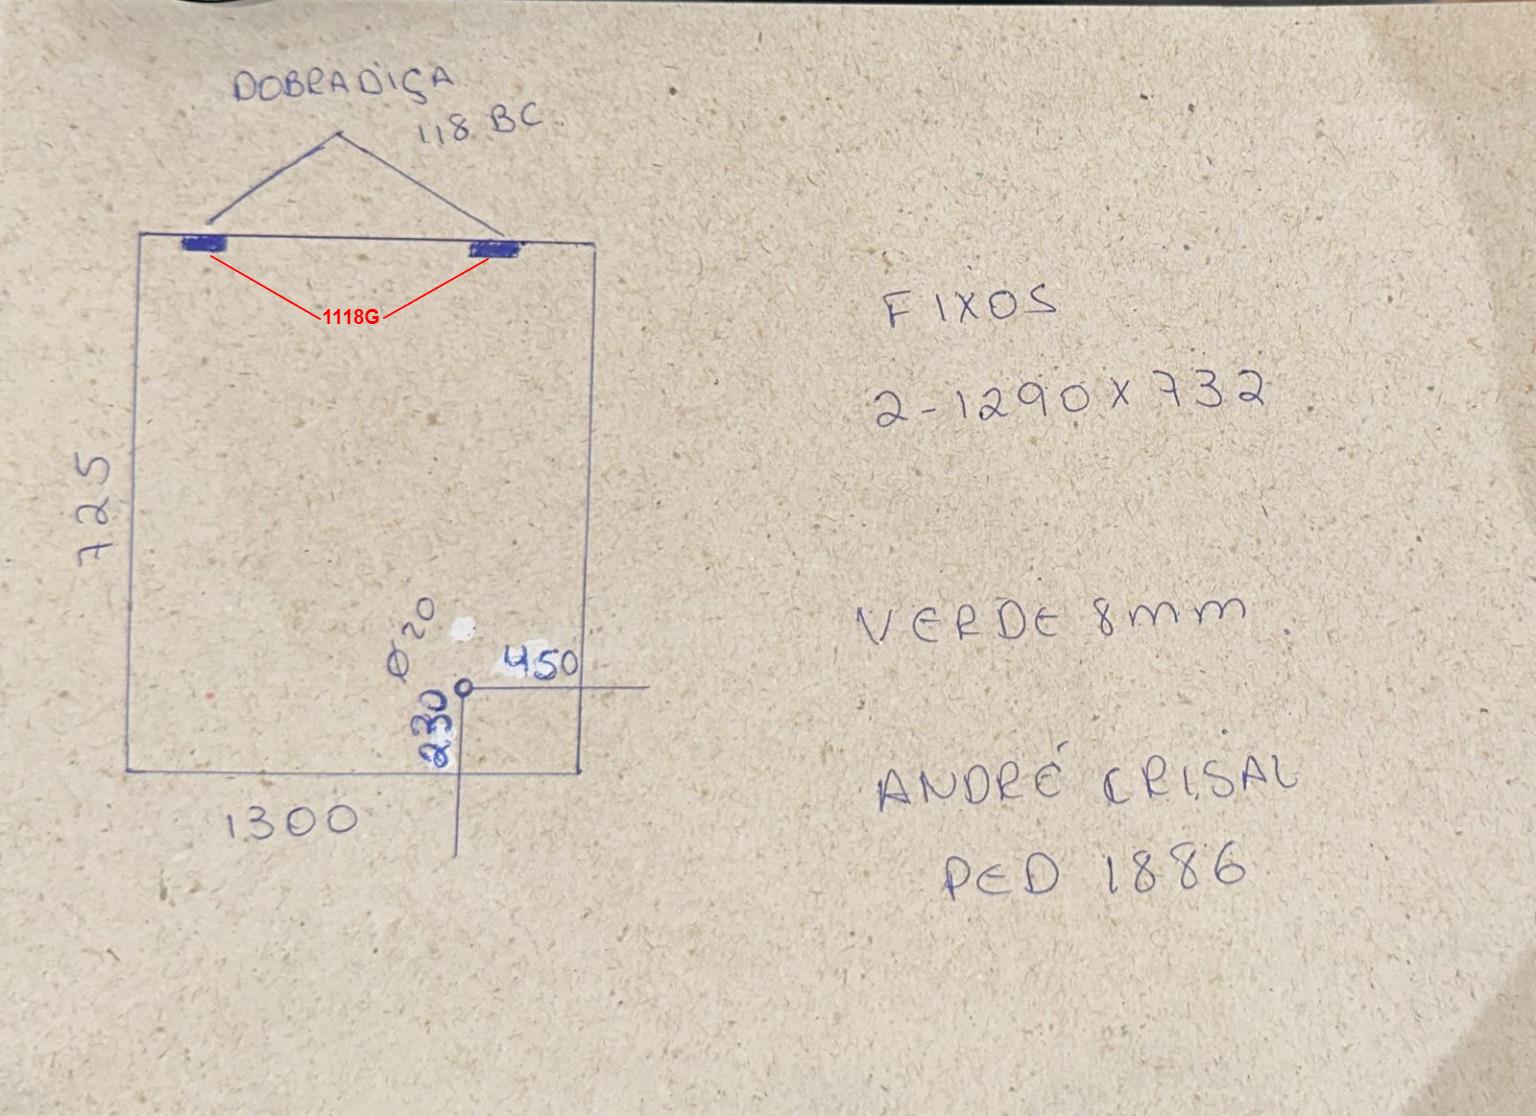 DOBRADIÇA
118 BC
1118G
725
Ø 20
450
230
1300
FIXOS
2-1290X732
VERDE 8mm
ANDRÉ CRISAL
PED 1886